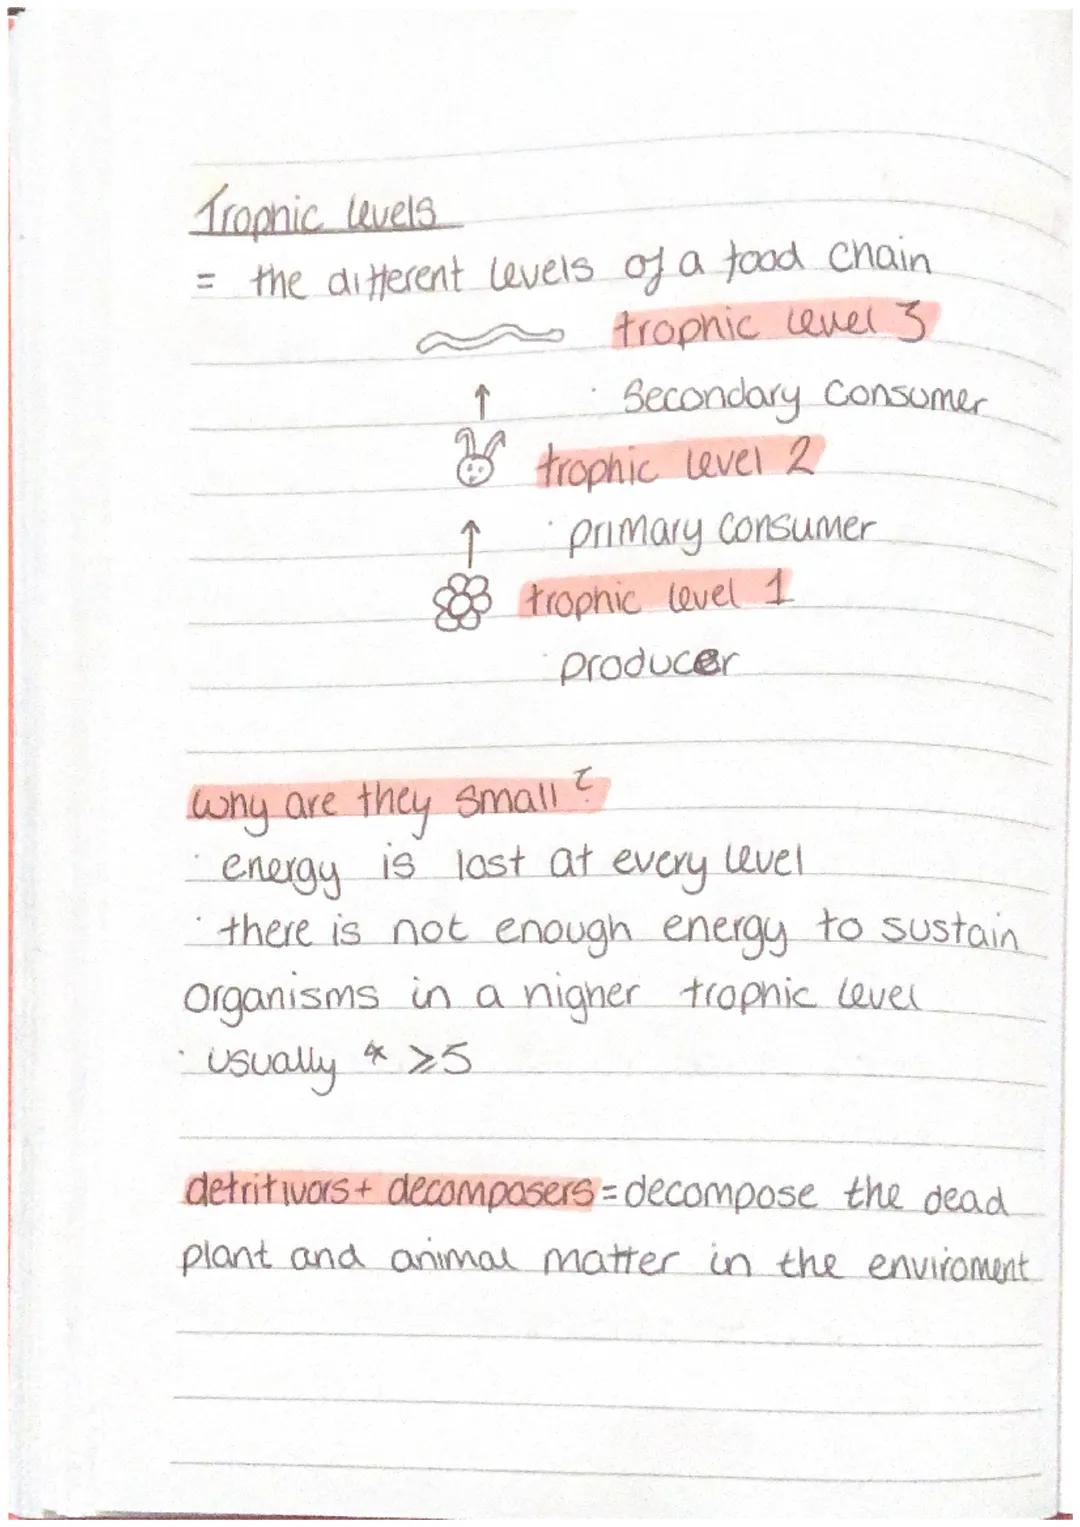 Trophic levels
= the different levels of a food chain
trophic level 3
· Secondary Consumer
trophic level 2
· primary consumer
trophic level 1
· producer
why are they small?
· energy is lost at every level
· there is not enough energy to sustain
organisms in a higher trophic level
· usually * ≥5
detritivors + decomposers = decompose the dead
plant and animal matter in the enviroment